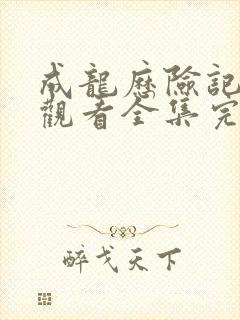 成龍歷險記
觀看全集完
醉戈天下